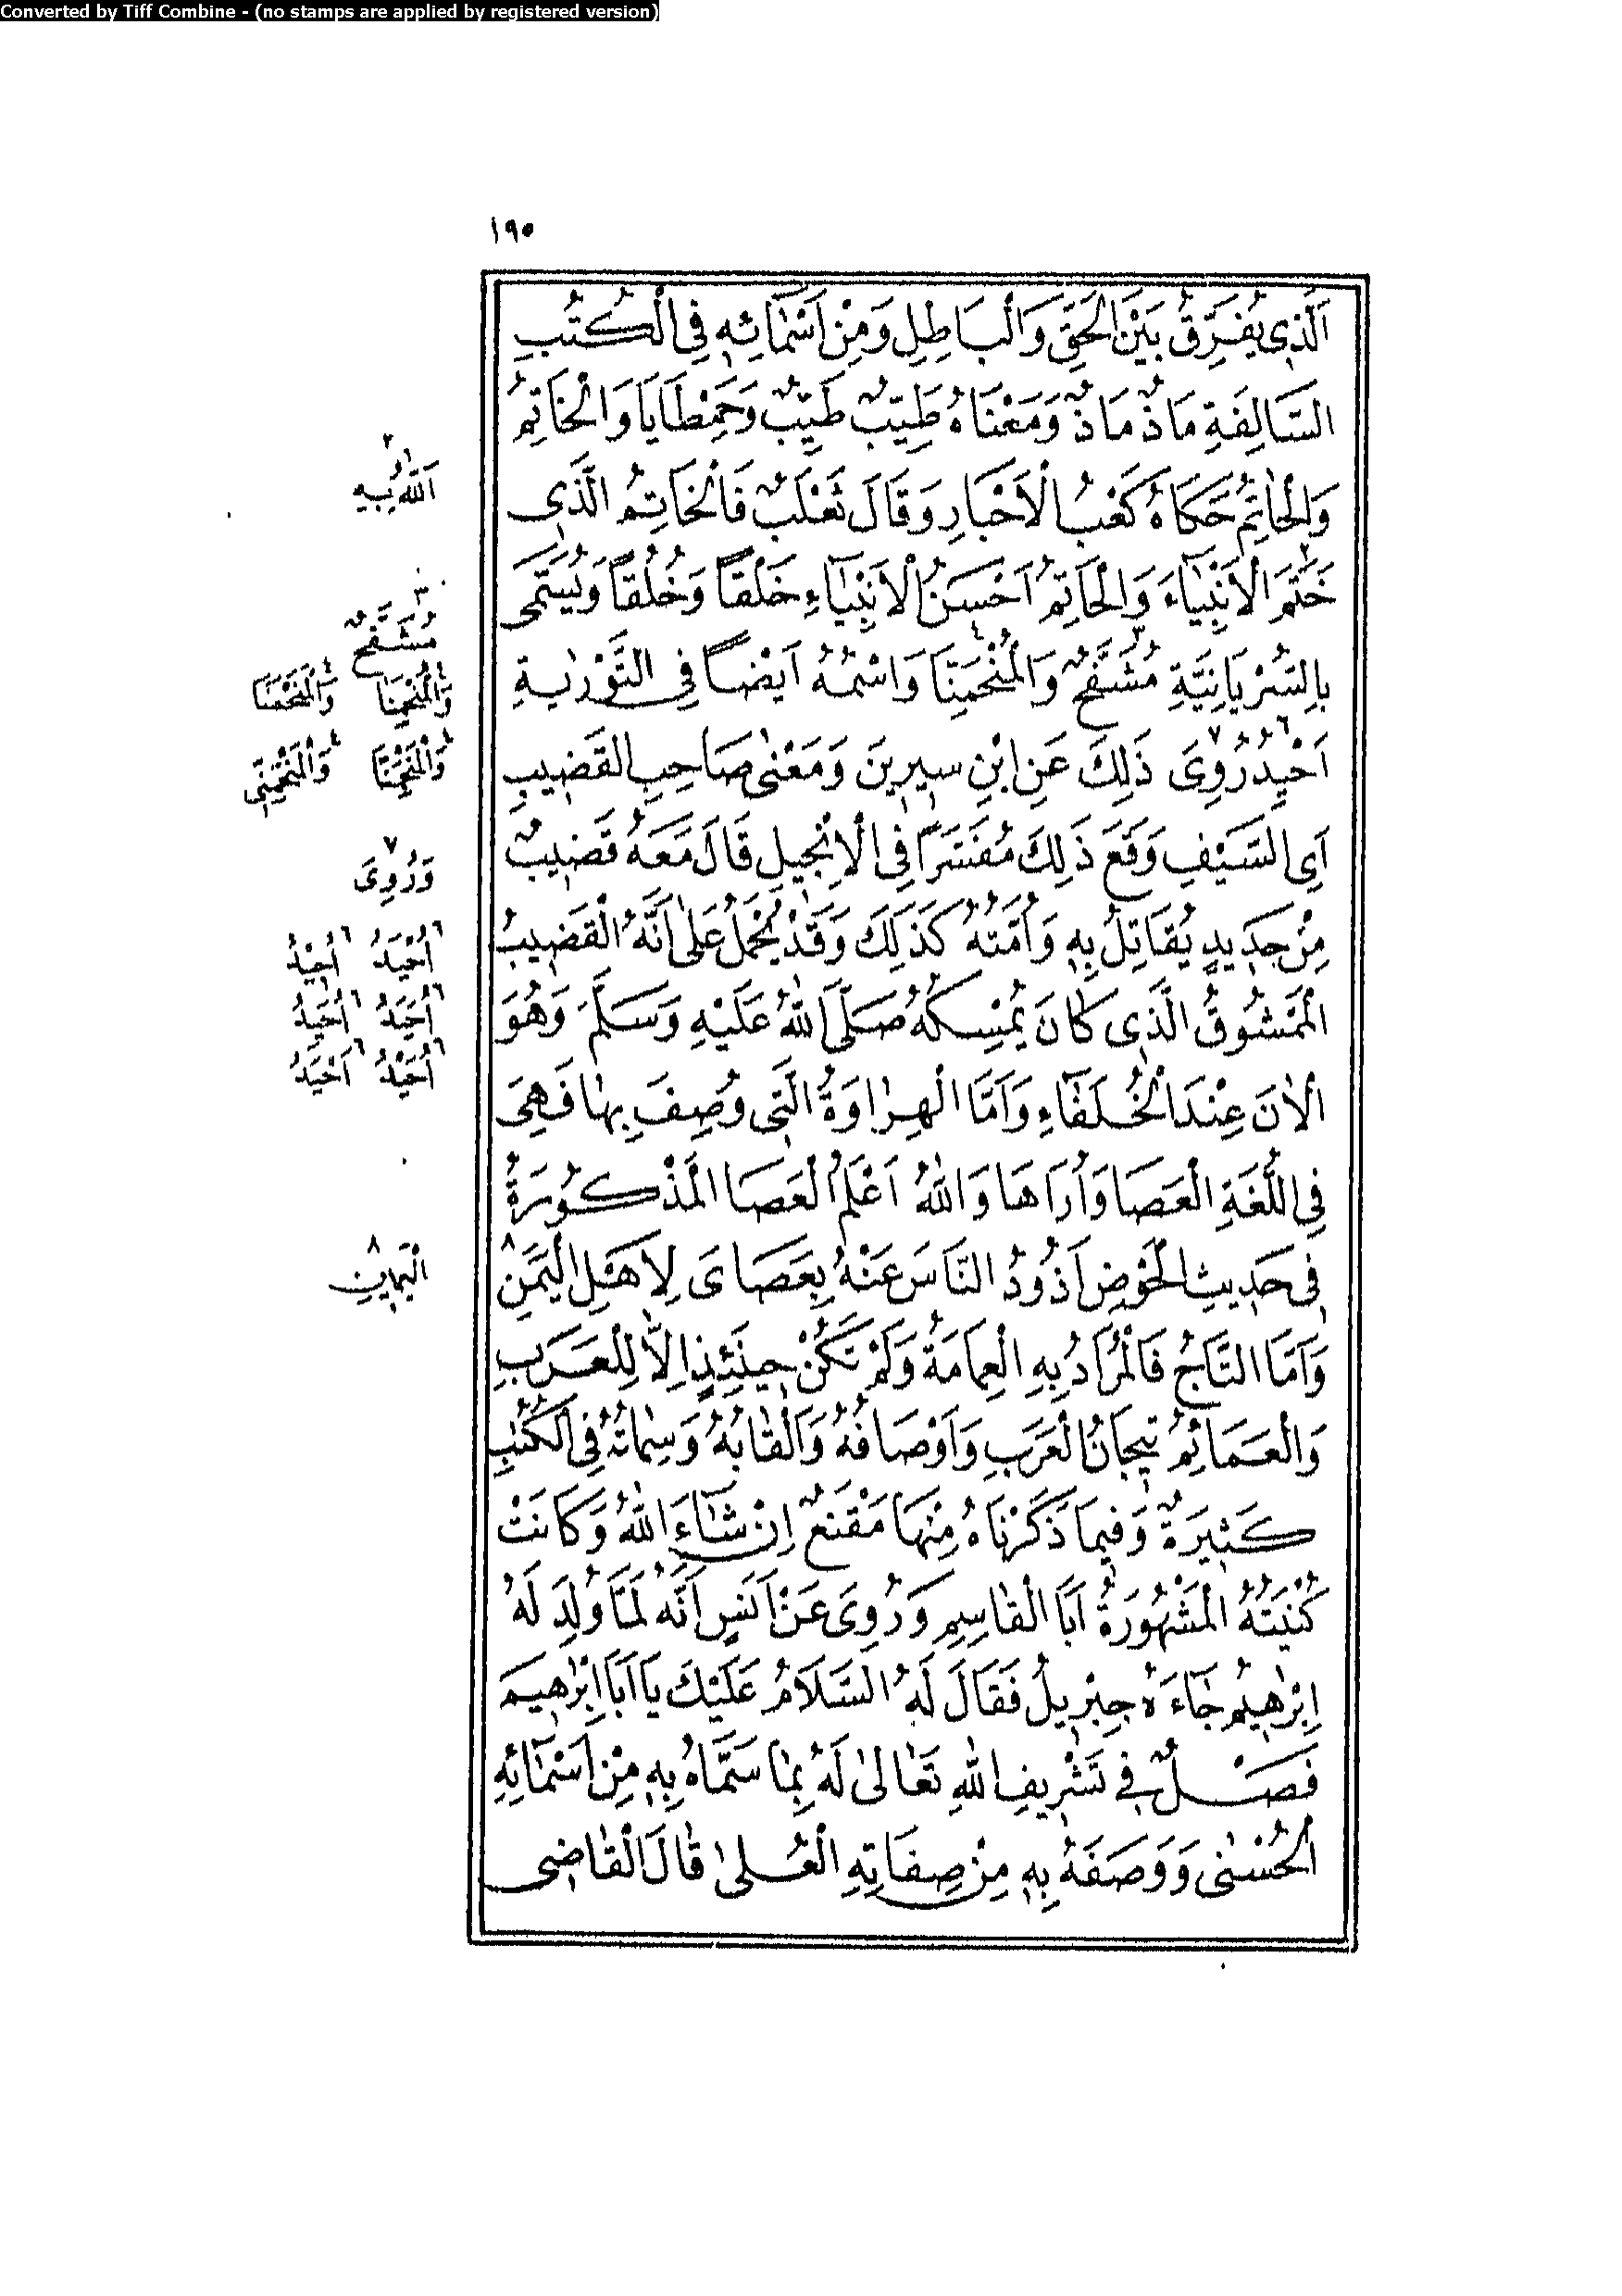 Converted by Tiff Combine - (no stamps are applied by registered version)
١٩٥
اَلَّذِى يُفَرِّقُ بَيْنَ الْحَقِّ وَالْبَاطِلِ وَمِنْ اَسْمَائِهِ فِى الْكُتُبِ
السَّالِفَةِ مَاذْ مَاذْ وَمَعْنَاهُ طَيِّبٌ طَيِّبٌ وَحَمْطَايَا وَالْخَاتِمُ
وَالْحَاتِمُ حَكَاهُ كَعْبُ الْاَحْبَارِ وَقَالَ ثَعْلَبٌ فَالْخَاتِمُ الَّذِى
خَتَمَ الْاَنْبِيَاءَ وَالْحَاتِمُ اَحْسَنُ الْاَنْبِيَاءِ خَلْقًا وَخُلُقًا وَيُسَمَّى
بِالسُّرْيَانِيَّةِ مُشَفَّحٌ وَالْمُنْحَمِنَّا وَاسْمُهُ اَيْضًا فِى التَّوْرٰيةِ
اُحِيدُ رُوِىَ ذٰلِكَ عَنِ ابْنِ سِيرِينَ وَمَعْنٰى صَاحِبِ الْقَضِيبِ
اَىِ السَّيْفِ وَقَعَ ذٰلِكَ مُفَسَّرًا فِى الْاِنْجِيلِ قَالَ مَعَهُ قَضِيبٌ
مِنْ حَدِيدٍ يُقَاتِلُ بِهِ وَاُمَّتُهُ كَذٰلِكَ وَقَدْ يُحْمَلُ عَلٰى اَنَّهُ الْقَضِيبُ
الْمَمْشُوقُ الَّذِى كَانَ يُمْسِكُهُ صَلَّى اللّٰهُ عَلَيْهِ وَسَلَّمَ وَهُوَ
الْاٰنَ عِنْدَ الْخُلَفَاءِ وَاَمَّا الْهِرَاوَةُ الَّتِى وُصِفَ بِهَا فَهِىَ
فِى اللُّغَةِ الْعَصَا وَاُرَاهَا وَاللّٰهُ اَعْلَمُ الْعَصَا الْمَذْكُورَةُ
فِى حَدِيثِ الْحَوْضِ اَذُودُ النَّاسَ عَنْهُ بِعَصَاىَ لِاَهْلِ الْيَمَنِ
وَاَمَّا التَّاجُ فَالْمُرَادُ بِهِ الْعِمَامَةُ وَلَمْ تَكُنْ حِينَئِذٍ اِلَّا لِلْعَرَبِ
وَالْعَمَائِمُ تِيجَانُ الْعَرَبِ وَاَوْصَافُهُ وَاَلْقَابُهُ وَسِمَاتُهُ فِى الْكُتُبِ
كَثِيرَةٌ وَفِيمَا ذَكَرْنَاهُ مِنْهَا مَقْنَعٌ اِنْ شَاءَ اللّٰهُ وَكَانَتْ
كُنْيَتُهُ الْمَشْهُورَةُ اَبَا الْقَاسِمِ وَرُوِىَ عَنْ اَنَسٍ اَنَّهُ لَمَّا وُلِدَ لَهُ
اِبْرٰهِيمُ جَاءَهُ جِبْرِيلُ فَقَالَ لَهُ السَّلَامُ عَلَيْكَ يَا اَبَا اِبْرٰهِيمَ
فَصْلٌ فِى تَشْرِيفِ اللّٰهِ تَعَالٰى لَهُ بِمَا سَمَّاهُ بِهِ مِنْ اَسْمَائِهِ
الْحُسْنٰى وَوَصَفَهُ بِهِ مِنْ صِفَاتِهِ الْعُلٰى قَالَ الْقَاضِى
٣
مُشَفَّحٌ
٧
وَرُوِىَ
٨